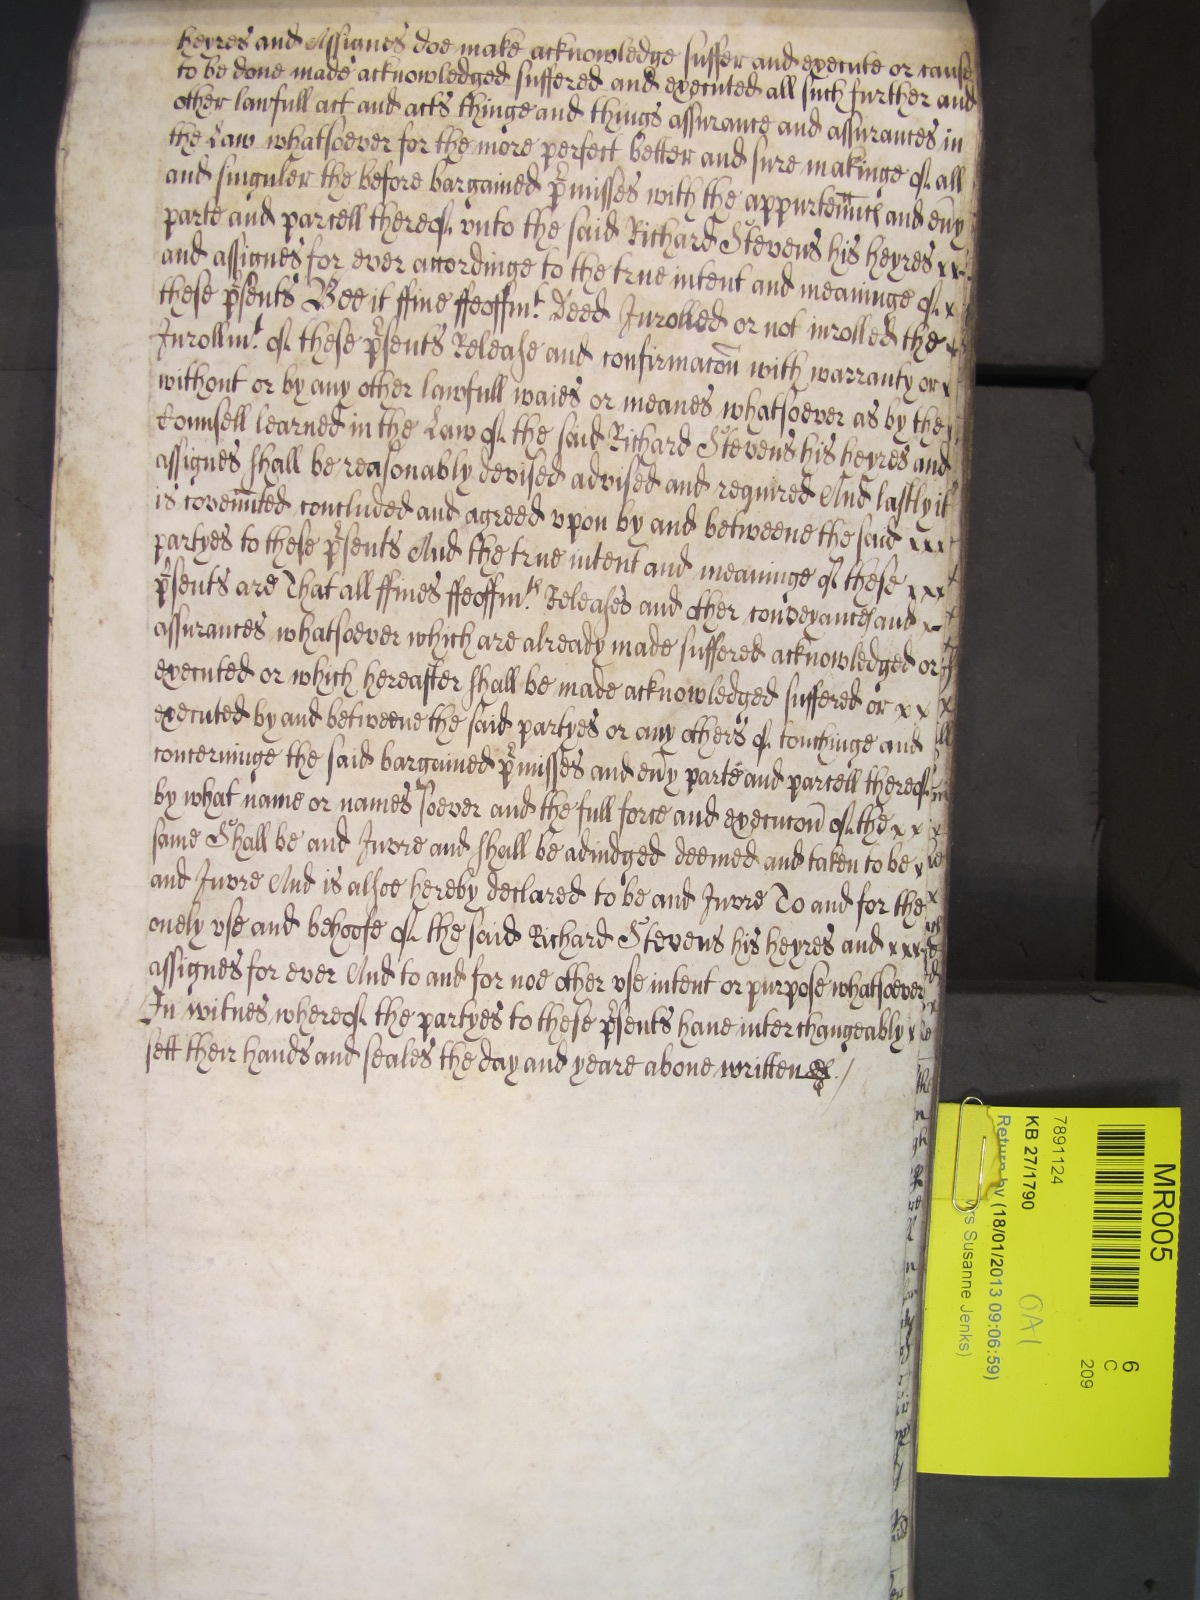 heyres and Assignes doe make acknowledge suffer and execute or cause
to be done made acknowledged suffered and executed all such further and
other lawfull act and acts thinge and things assurance and assurances in
the Law whatsoever for the more perfect better and sure makinge of all
and singuler the before bargained p̃misses with the appurtenñces and eũy
parte and parcell thereof vnto the said Richard Stevens his heyres x x
and assignes for ever accordinge to the true intent and meaninge of x
these p̃sents Bee it ffine ffeoffm.t Deed Inrolled or not inrolled the x
Inrollm.t of these p̃sents Release and confirmacoñ with warranty or x
without or by any other lawfull waies or meanes whatsoever as by the
Counsell learned in the Law of the said Richard Stevens his heyres and
assignes shall be reasonably devised advised and required And lastly it
is coveñnted concluded and agreed vpon by and betweene the said x x x
partyes to these p̃sents And the true intent and meaninge of these x x x
p̃sents are That all ffines ffeoffm.ts Releases and other conveyances and x
assurances whatsoever which are already made suffered acknowledged or
executed or which hereafter shall be made acknowledged suffered or x x
executed by and betweene the said partyes or any others of touchinge and
concerninge the said bargained p̃misses and eũy parte and parcell thereof
by what name or names soever and the full force and execucoñ of the x x
same Shall be and Inure and shall be adiudged deemed and taken to be x
and Inure And is alsoe hereby declared to be and Inure To and for the
onely vse and behoofe of the said Richard Stevens his heyres and x x x
assignes for ever And to and for noe other vse intent or purpose whatsoever
In witnes whereof the partyes to these p̃sents haue interchangeably x
sett their hands and seales the day and yeare aboue written
MR005
6
C
209
7891124
KB 27/1790
OA1
Return by (18/01/2013 09:06:59)
Mrs Susanne Jenks)